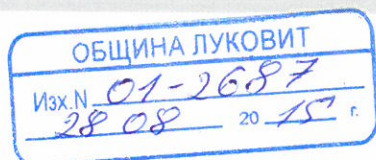 ОБЩИНА ЛУКОВИТ
Изх.N 01-2687
28 08 20 15 г.